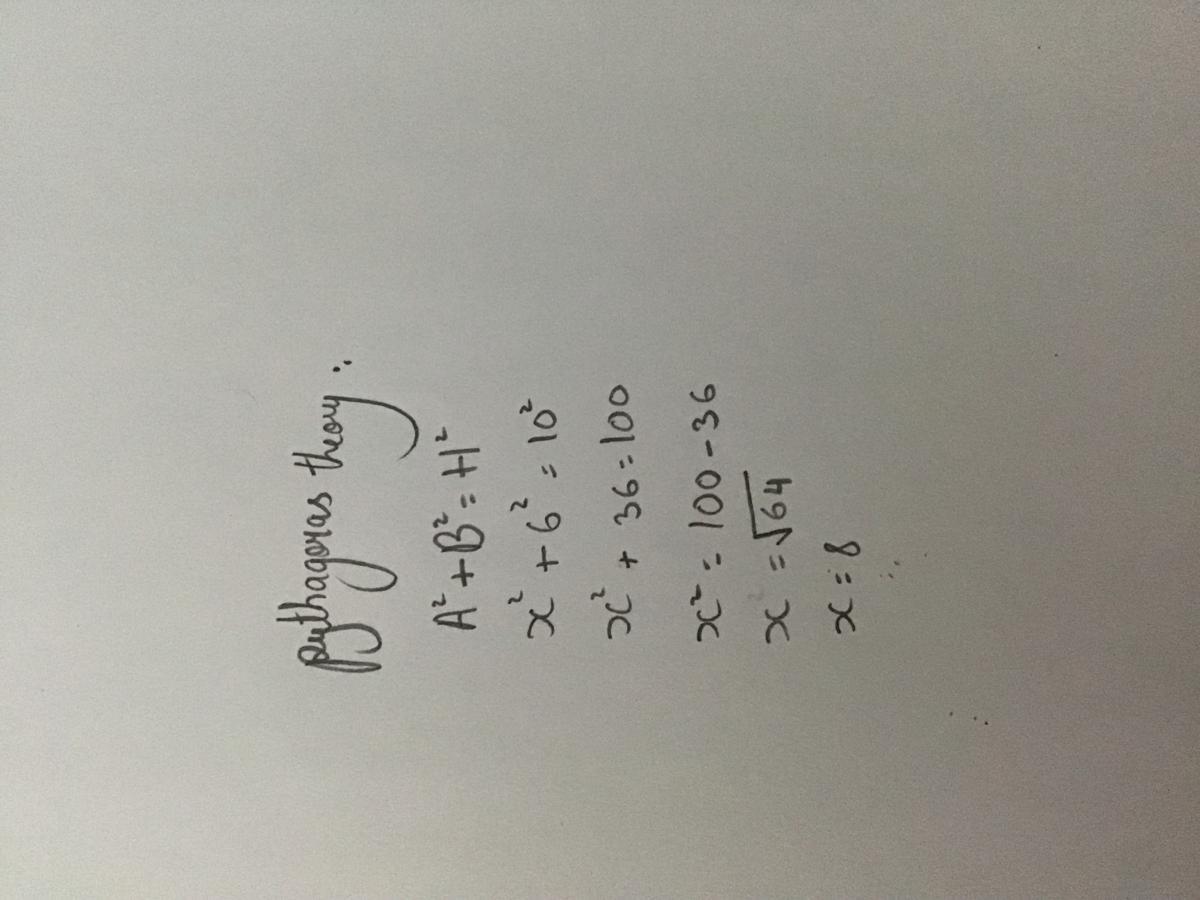 Pythagoras theory :
A² + B² = H²
x² + 6² = 10²
x² + 36 = 100
x² = 100 - 36
x = √64
x = 8